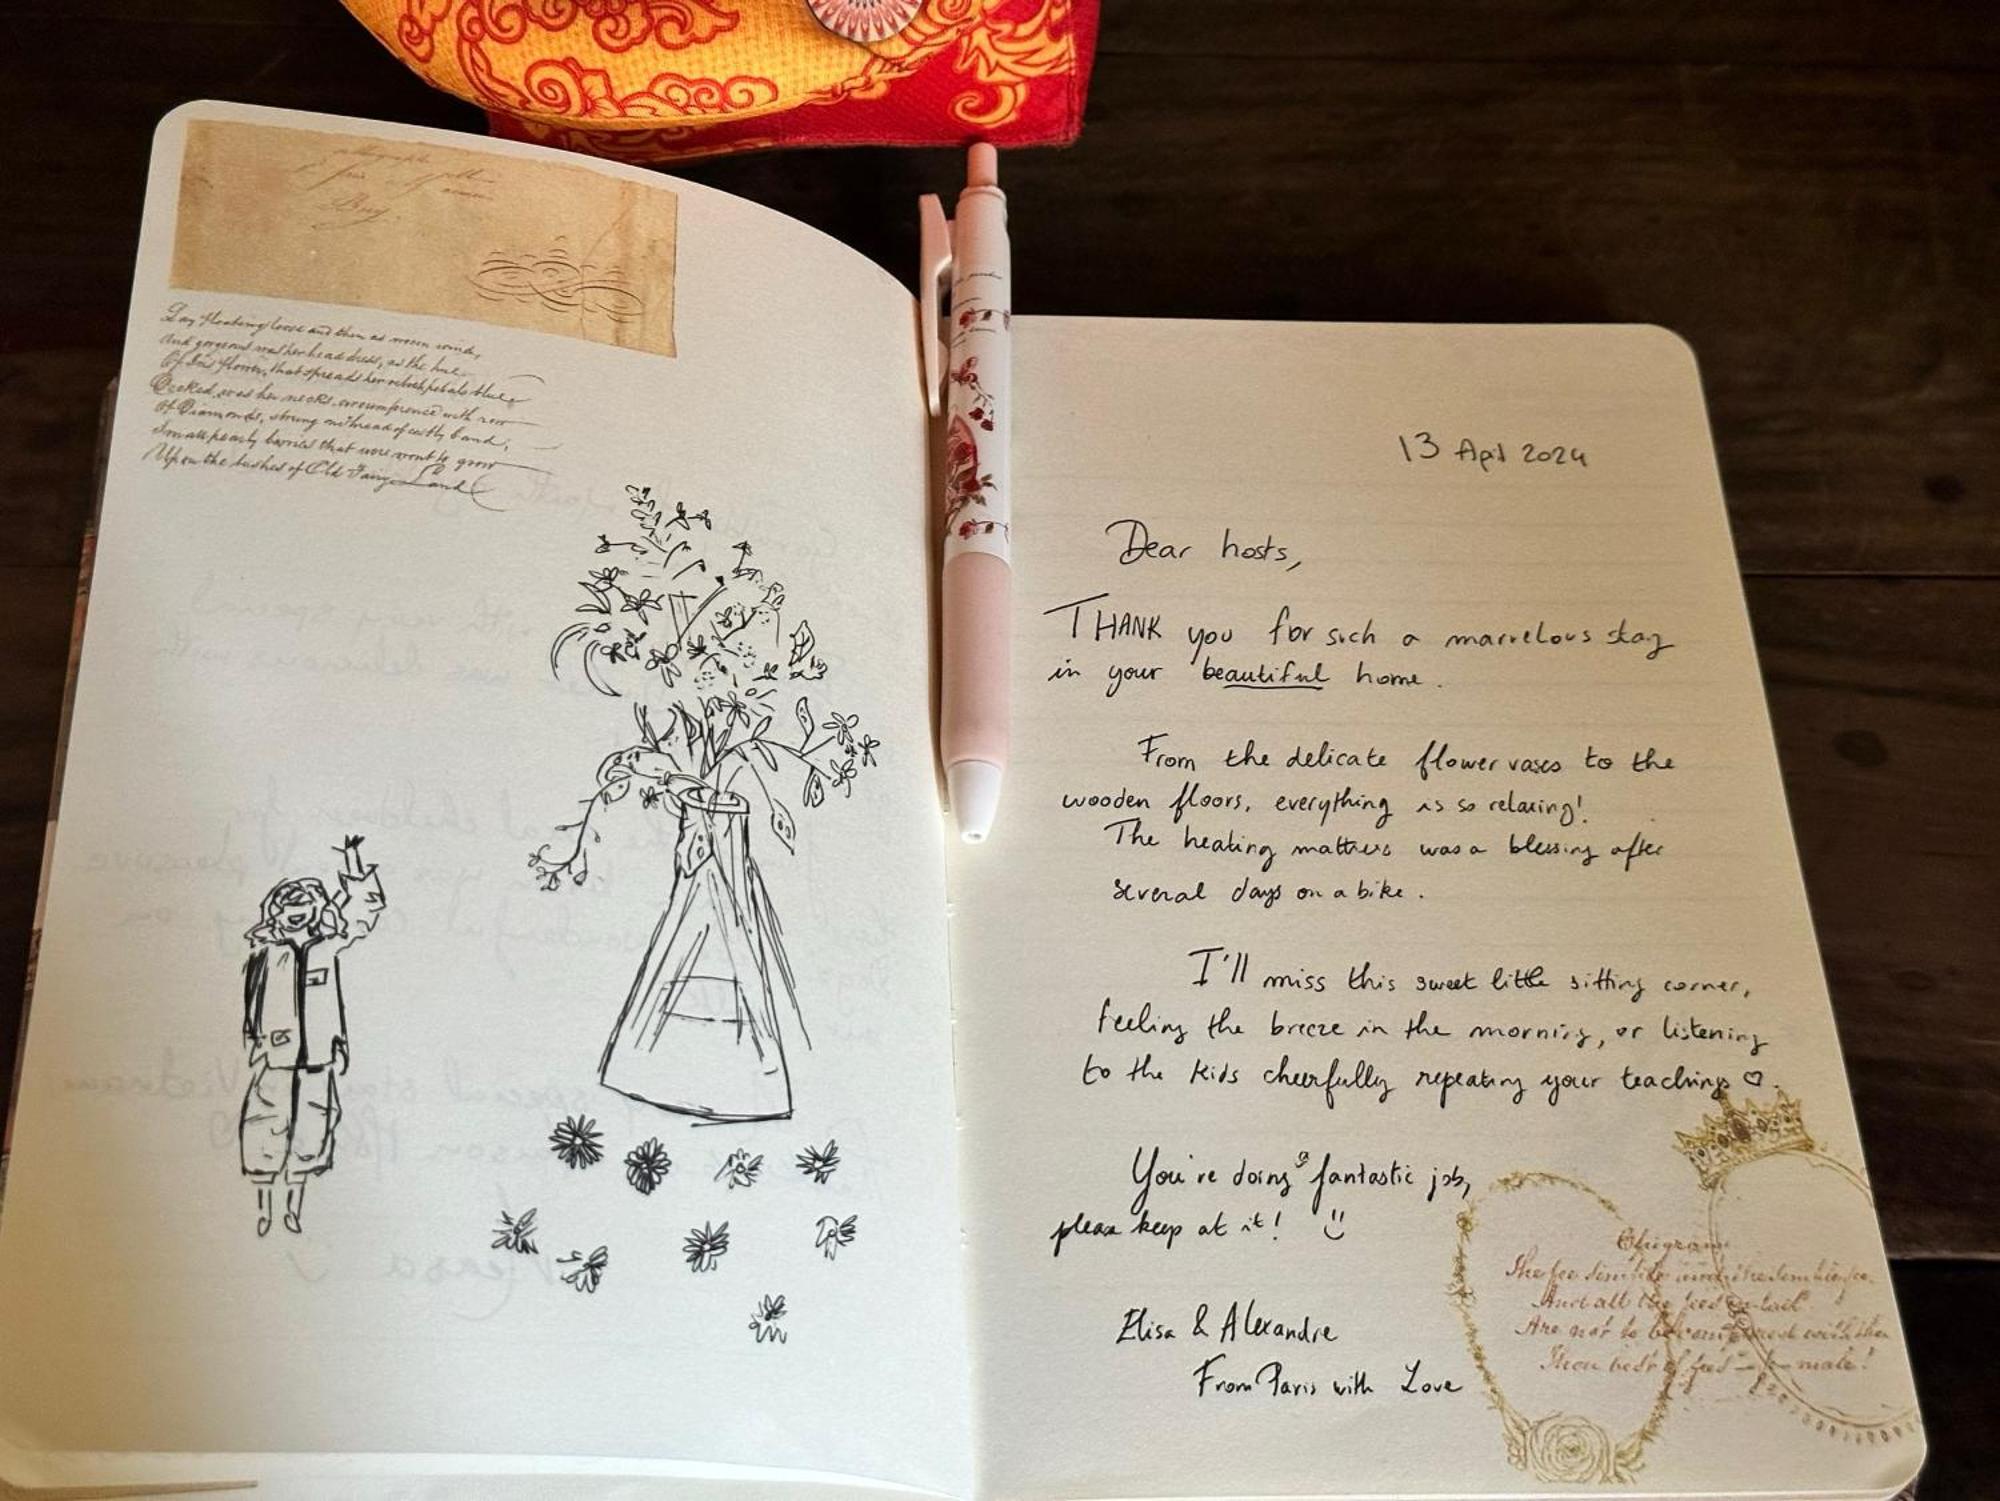 Lay floating loose and then as woven winds,
And gorgeous was her head dress, as the hue
Of Iris flower, that spreads her velvet petals blue
Decked, was her neck's circumference with row
Of Diamonds, strung on thread of costly band,
Small pearly berries that were wont to grow
Upon the bushes of Old Fairy Land
13 April 2024
Dear hosts,
THANK you for such a marvelous stay
in your beautiful home.
From the delicate flower vases to the
wooden floors, everything is so relaxing!
The heating mattress was a blessing after
several days on a bike.
I'll miss this sweet little sitting corner,
feeling the breeze in the morning, or listening
to the kids cheerfully repeating your teachings ♡.
You're doing a fantastic job,
please keep at it!
Elisa & Alexandre
From Paris with Love
Epigram
The fee simple and the simple fee,
And all the fees entail
Are not to be compared with thee
Thou best of fees — fe-male!